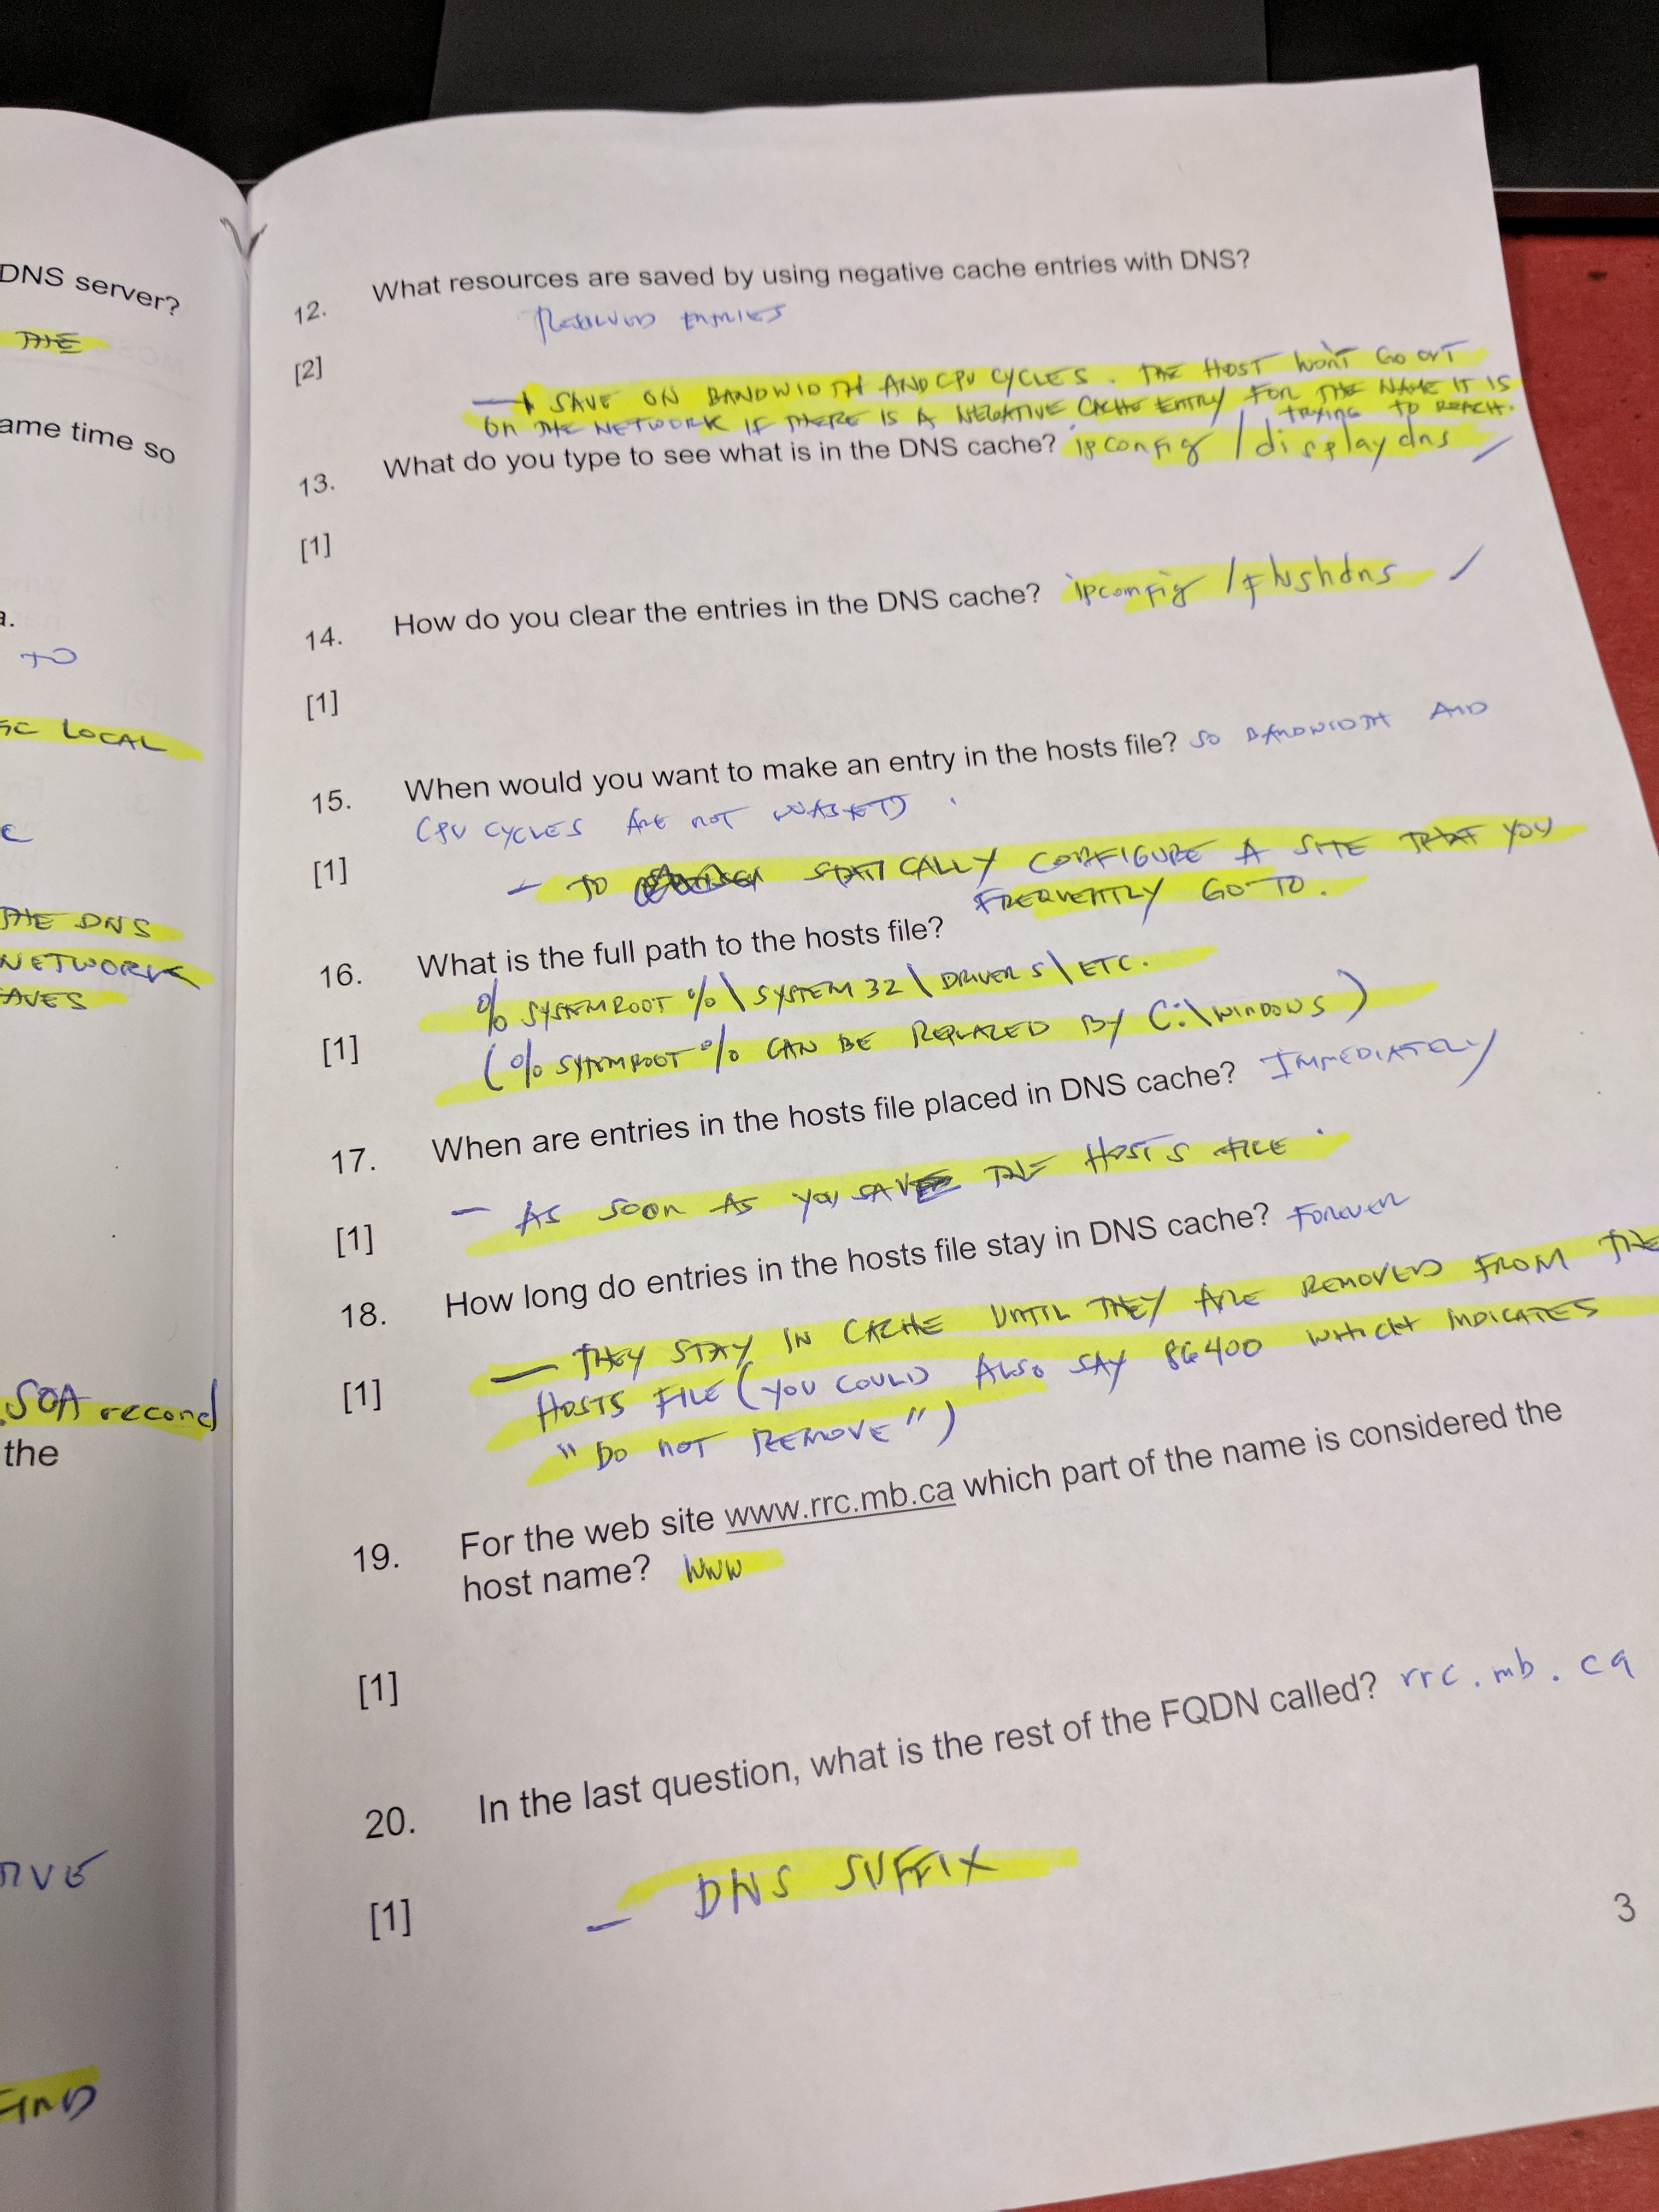 DNS server?
THE
ame time so
a.
TO
SC LOCAL
C
THE DNS
NETWORK
AVES
.SOA record
the
FIND
12. What resources are saved by using negative cache entries with DNS?
RESOLVED ENTRIES
[2]
SAVE ON BANDWIDTH AND CPU CYCLES. THE HOST WON'T GO OUT
ON THE NETWORK IF THERE IS A NEGATIVE CACHE ENTRY FOR THE NAME IT IS
TRYING TO REACH.
13. What do you type to see what is in the DNS cache? ipconfig /displaydns
[1]
14. How do you clear the entries in the DNS cache? ipconfig /flushdns
[1]
15. When would you want to make an entry in the hosts file? SO BANDWIDTH AND
CPU CYCLES ARE NOT WASTED.
[1]
– TO STATICALLY CONFIGURE A SITE THAT YOU
FREQUENTLY GO TO.
16. What is the full path to the hosts file?
% SYSTEMROOT %\SYSTEM 32\DRIVERS\ETC.
[1]
(% SYTEMROOT % CAN BE REPLACED BY C:\WINDOWS)
17. When are entries in the hosts file placed in DNS cache? IMMEDIATELY
– AS SOON AS YOU SAVE THE HOSTS FILE.
[1]
18. How long do entries in the hosts file stay in DNS cache? FOREVER
– THEY STAY IN CACHE UNTIL THEY ARE REMOVED FROM THE
[1]
HOSTS FILE (YOU COULD ALSO SAY 86400 WHICH INDICATES
"DO NOT REMOVE")
19. For the web site www.rrc.mb.ca which part of the name is considered the
host name? WWW
[1]
20. In the last question, what is the rest of the FQDN called? rrc.mb.ca
[1]
– DNS SUFFIX
3